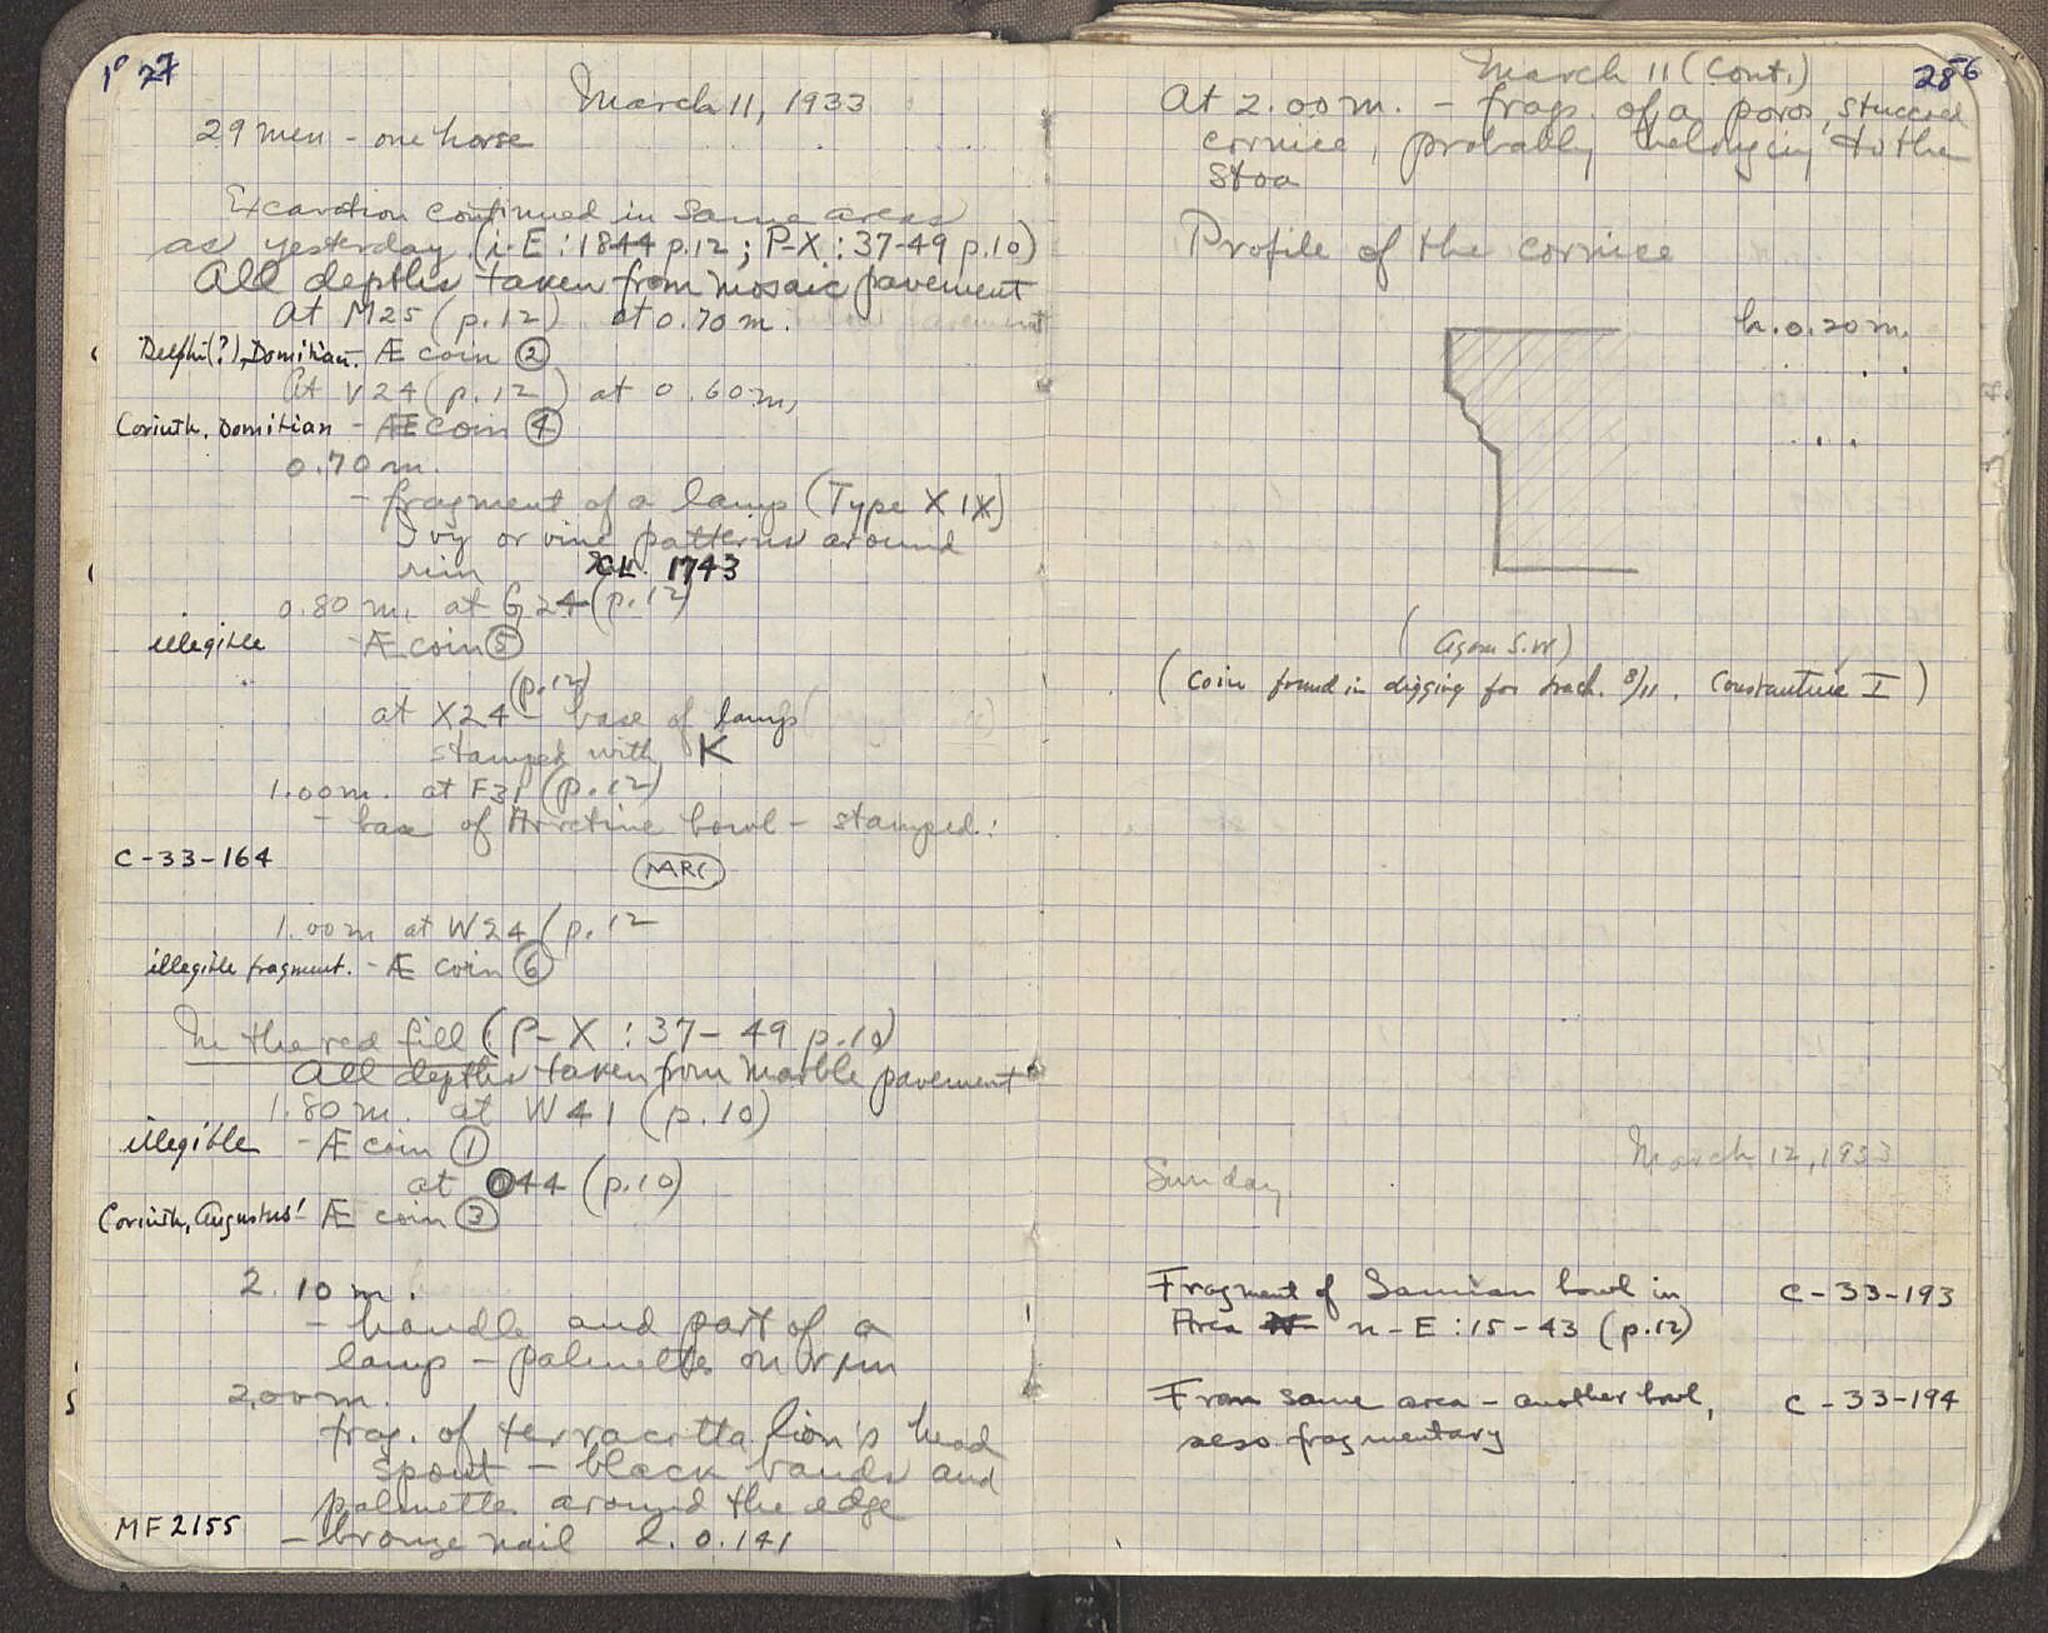 27
March 11, 1933
29 men - one horse
Excavation continued in same areas
as yesterday (i-E : 1844 p.12 ; P-X : 37-49 p.10)
All depths taken from mosaic pavement
At M25 (p.12) at 0.70 m.
Delphi(?), Domitian. Æ coin ②
At V24 (p.12) at 0.60 m,
Corinth. Domitian - Æ coin ④
0.70 m.
- fragment of a lamp (Type XIX)
Ivy or vine patterns around
rim CL. 1743
0.80 m. at G24 (p.12)
illegible - Æ coin ⑤
(p.12)
at X24 - base of lamp
stamped with K
1.00 m. at F31 (p.12)
- base of Arretine bowl - stamped:
C-33-164
1.00 m at W24 (p.12
illegible fragment. - Æ coin ⑥
In the red fill (P-X : 37-49 p.10)
All depths taken from marble pavement
1.80 m. at W41 (p.10)
illegible - Æ coin ①
at O44 (p.10)
Corinth, Augustus! Æ coin ③
2.10 m.
- handle and part of a
lamp - palmettes on rim
2.00 m.
frag. of terracotta lion's head
spout - black bands and
palmettes around the edge
MF 2155 - bronze nail l. 0.141
March 11 (Cont.)
28
At 2.00 m. - frags. of a poros, stuccoed
cornice, probably belonging to the
Stoa
Profile of the cornice
h. 0.20 m.
(Agora S.W)
(Coin found in digging for track. 8/11. Constantine I)
March 12, 1933
Sunday
Fragment of Samian bowl in C-33-193
Area n-E : 15-43 (p.12)
From same area - another bowl, C-33-194
fragmentary